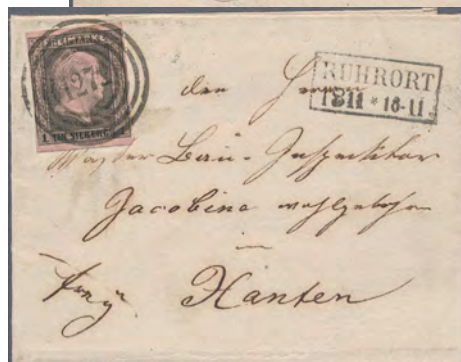 FREIMARKE
127
1 SILBERGR. 1
RUHRORT
13 11 * 10-11
den Herrn
Wasser Bau-Inspektor
Jacobine wohlgeboren
in
Xanten